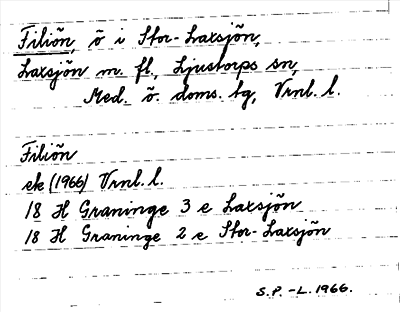 Filiön, ö i Stor-Laxsjön,
Laxsjön m. fl., Ljustorps sn,
Med. ö. doms. tg, Vrnl. l.
Filiön
ek (1966) Vrnl. l.
18 H Graninge 3 e Laxsjön
18 H Graninge 2 e Stor-Laxsjön
S.P. -L. 1966.